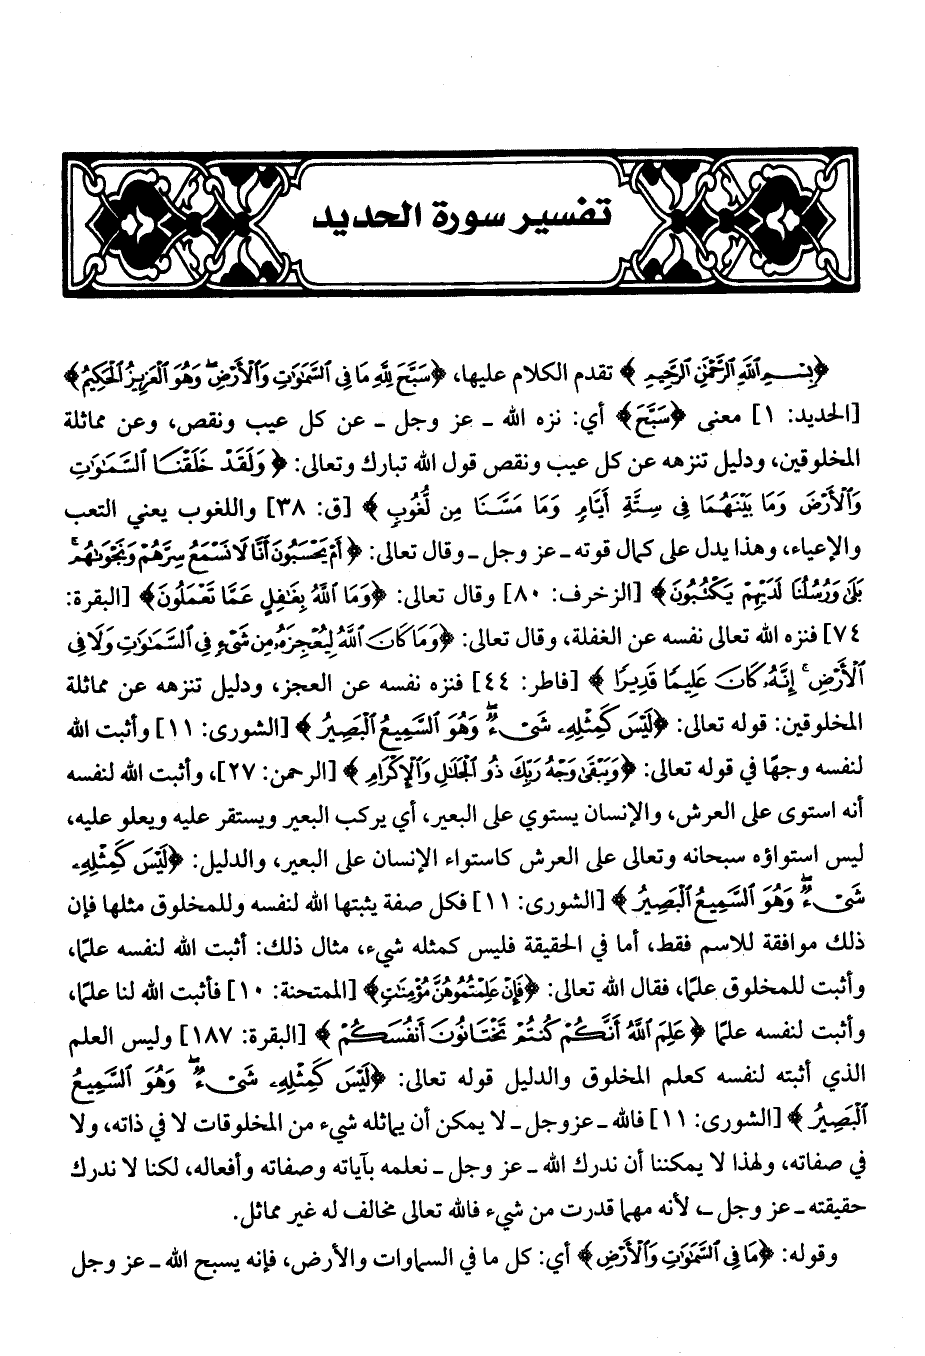 تفسير سورة الحديد
﴿بِسْمِ ٱللَّهِ ٱلرَّحْمَٰنِ ٱلرَّحِيمِ﴾ تقدم الكلام عليها، ﴿سَبَّحَ لِلَّهِ مَا فِي ٱلسَّمَٰوَٰتِ وَٱلْأَرْضِۖ وَهُوَ ٱلْعَزِيزُ ٱلْحَكِيمُ﴾
[الحديد: ١] معنى ﴿سَبَّحَ﴾ أي: نزه الله ـ عز وجل ـ عن كل عيب ونقص، وعن مماثلة
المخلوقين، ودليل تنزهه عن كل عيب ونقص قول الله تبارك وتعالى: ﴿وَلَقَدْ خَلَقْنَا ٱلسَّمَٰوَٰتِ
وَٱلْأَرْضَ وَمَا بَيْنَهُمَا فِي سِتَّةِ أَيَّامٍ وَمَا مَسَّنَا مِن لُّغُوبٍ﴾ [ق: ٣٨] واللغوب يعني التعب
والإعياء، وهذا يدل على كمال قوته ـ عز وجل ـ وقال تعالى: ﴿أَمْ يَحْسَبُونَ أَنَّا لَا نَسْمَعُ سِرَّهُمْ وَنَجْوَىٰهُمۚ
بَلَىٰ وَرُسُلُنَا لَدَيْهِمْ يَكْتُبُونَ﴾ [الزخرف: ٨٠] وقال تعالى: ﴿وَمَا ٱللَّهُ بِغَٰفِلٍ عَمَّا تَعْمَلُونَ﴾ [البقرة:
٧٤] فنزه الله تعالى نفسه عن الغفلة، وقال تعالى: ﴿وَمَا كَانَ ٱللَّهُ لِيُعْجِزَهُۥ مِن شَيْءٍ فِي ٱلسَّمَٰوَٰتِ وَلَا فِي
ٱلْأَرْضِۚ إِنَّهُۥ كَانَ عَلِيمًا قَدِيرًا﴾ [فاطر: ٤٤] فنزه نفسه عن العجز، ودليل تنزهه عن مماثلة
المخلوقين: قوله تعالى: ﴿لَيْسَ كَمِثْلِهِۦ شَيْءٌۖ وَهُوَ ٱلسَّمِيعُ ٱلْبَصِيرُ﴾ [الشورى: ١١] وأثبت الله
لنفسه وجهًا في قوله تعالى: ﴿وَيَبْقَىٰ وَجْهُ رَبِّكَ ذُو ٱلْجَلَٰلِ وَٱلْإِكْرَامِ﴾ [الرحمن: ٢٧]، وأثبت الله لنفسه
أنه استوى على العرش، والإنسان يستوي على البعير، أي يركب البعير ويستقر عليه ويعلو عليه،
ليس استواؤه سبحانه وتعالى على العرش كاستواء الإنسان على البعير، والدليل: ﴿لَيْسَ كَمِثْلِهِۦ
شَيْءٌۖ وَهُوَ ٱلسَّمِيعُ ٱلْبَصِيرُ﴾ [الشورى: ١١] فكل صفة يثبتها الله لنفسه وللمخلوق مثلها فإن
ذلك موافقة للاسم فقط، أما في الحقيقة فليس كمثله شيء، مثال ذلك: أثبت الله لنفسه علمًا،
وأثبت للمخلوق علمًا، فقال الله تعالى: ﴿فَإِنْ عَلِمْتُمُوهُنَّ مُؤْمِنَٰتٍ﴾ [الممتحنة: ١٠] فأثبت الله لنا علمًا،
وأثبت لنفسه علمًا ﴿عَلِمَ ٱللَّهُ أَنَّكُمْ كُنتُمْ تَخْتَانُونَ أَنفُسَكُمْ﴾ [البقرة: ١٨٧] وليس العلم
الذي أثبته لنفسه كعلم المخلوق والدليل قوله تعالى: ﴿لَيْسَ كَمِثْلِهِۦ شَيْءٌۖ وَهُوَ ٱلسَّمِيعُ
ٱلْبَصِيرُ﴾ [الشورى: ١١] فالله ـ عزوجل ـ لا يمكن أن يماثله شيء من المخلوقات لا في ذاته، ولا
في صفاته، ولهذا لا يمكننا أن ندرك الله ـ عز وجل ـ نعلمه بآياته وصفاته وأفعاله، لكنا لا ندرك
حقيقته ـ عز وجل ـ، لأنه مهما قدرت من شيء فالله تعالى مخالف له غير مماثل.
وقوله: ﴿مَا فِي ٱلسَّمَٰوَٰتِ وَٱلْأَرْضِ﴾ أي: كل ما في السماوات والأرض، فإنه يسبح الله ـ عز وجل